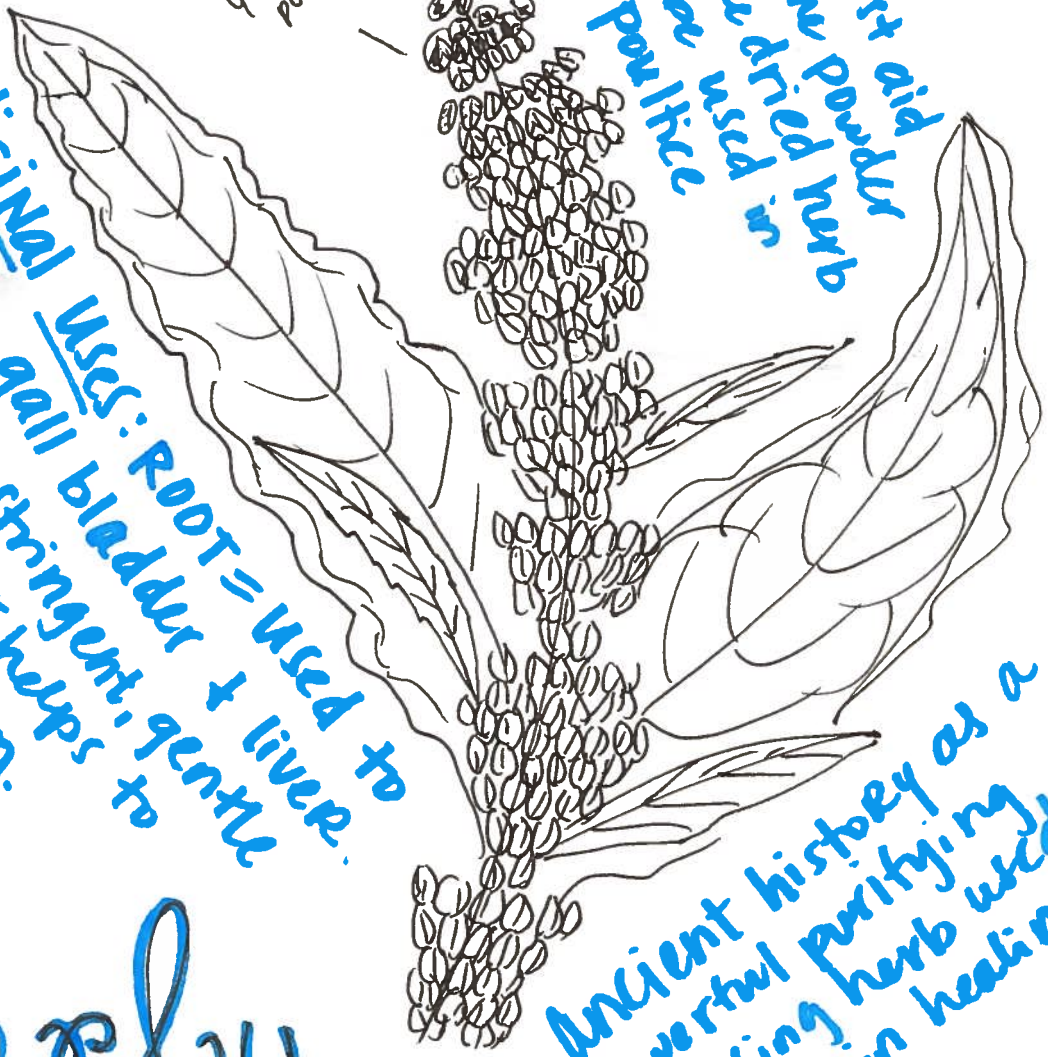 st aid
powder
dried herb
used in
poultice
Uses: ROOT = used to
gall bladder + liver.
stringent, gentle
helps to
ancient history as a
werful purifying
herb used
healin